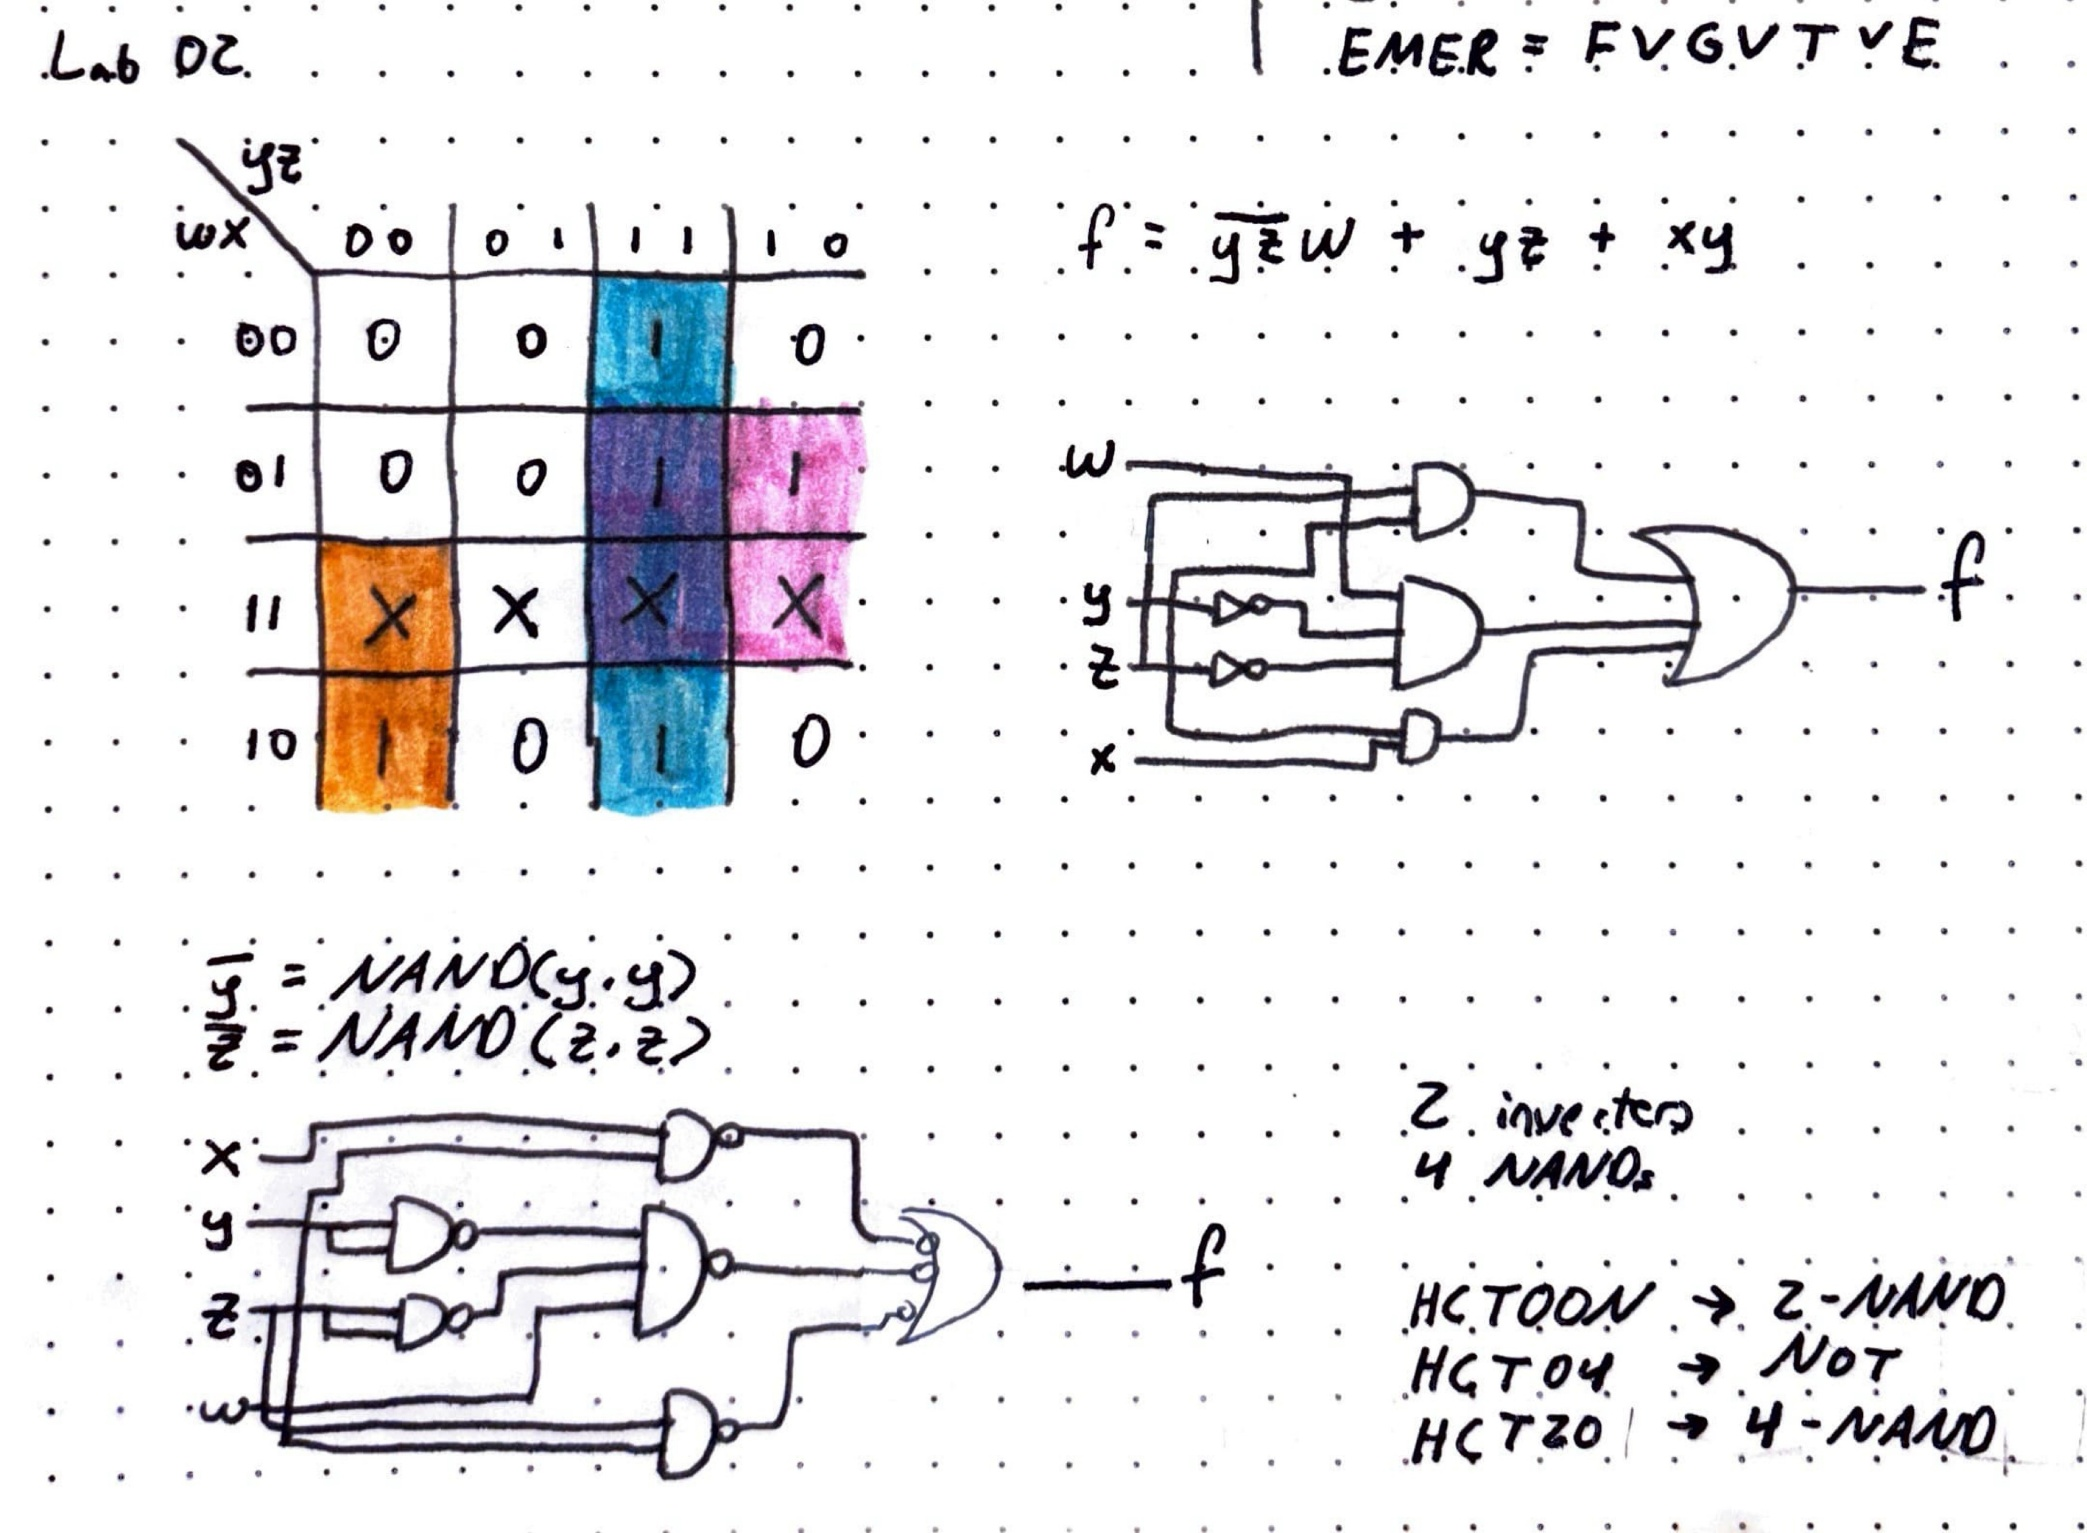 Lab 02
EMER = F V G V T V E
yz
wx 00 01 11 10
00 0 0 1 0
01 0 0 1 1
11 X X X X
10 1 0 1 0
f = y̅z̅w + yz + xy
w
y
z
x
f
y̅ = NAND(y·y)
z̅ = NAND(z·z)
x
y
z
w
f
2 inverters
4 NANDs
HCT00N → 2-NAND
HCT04 → NOT
HCT20 → 4-NAND